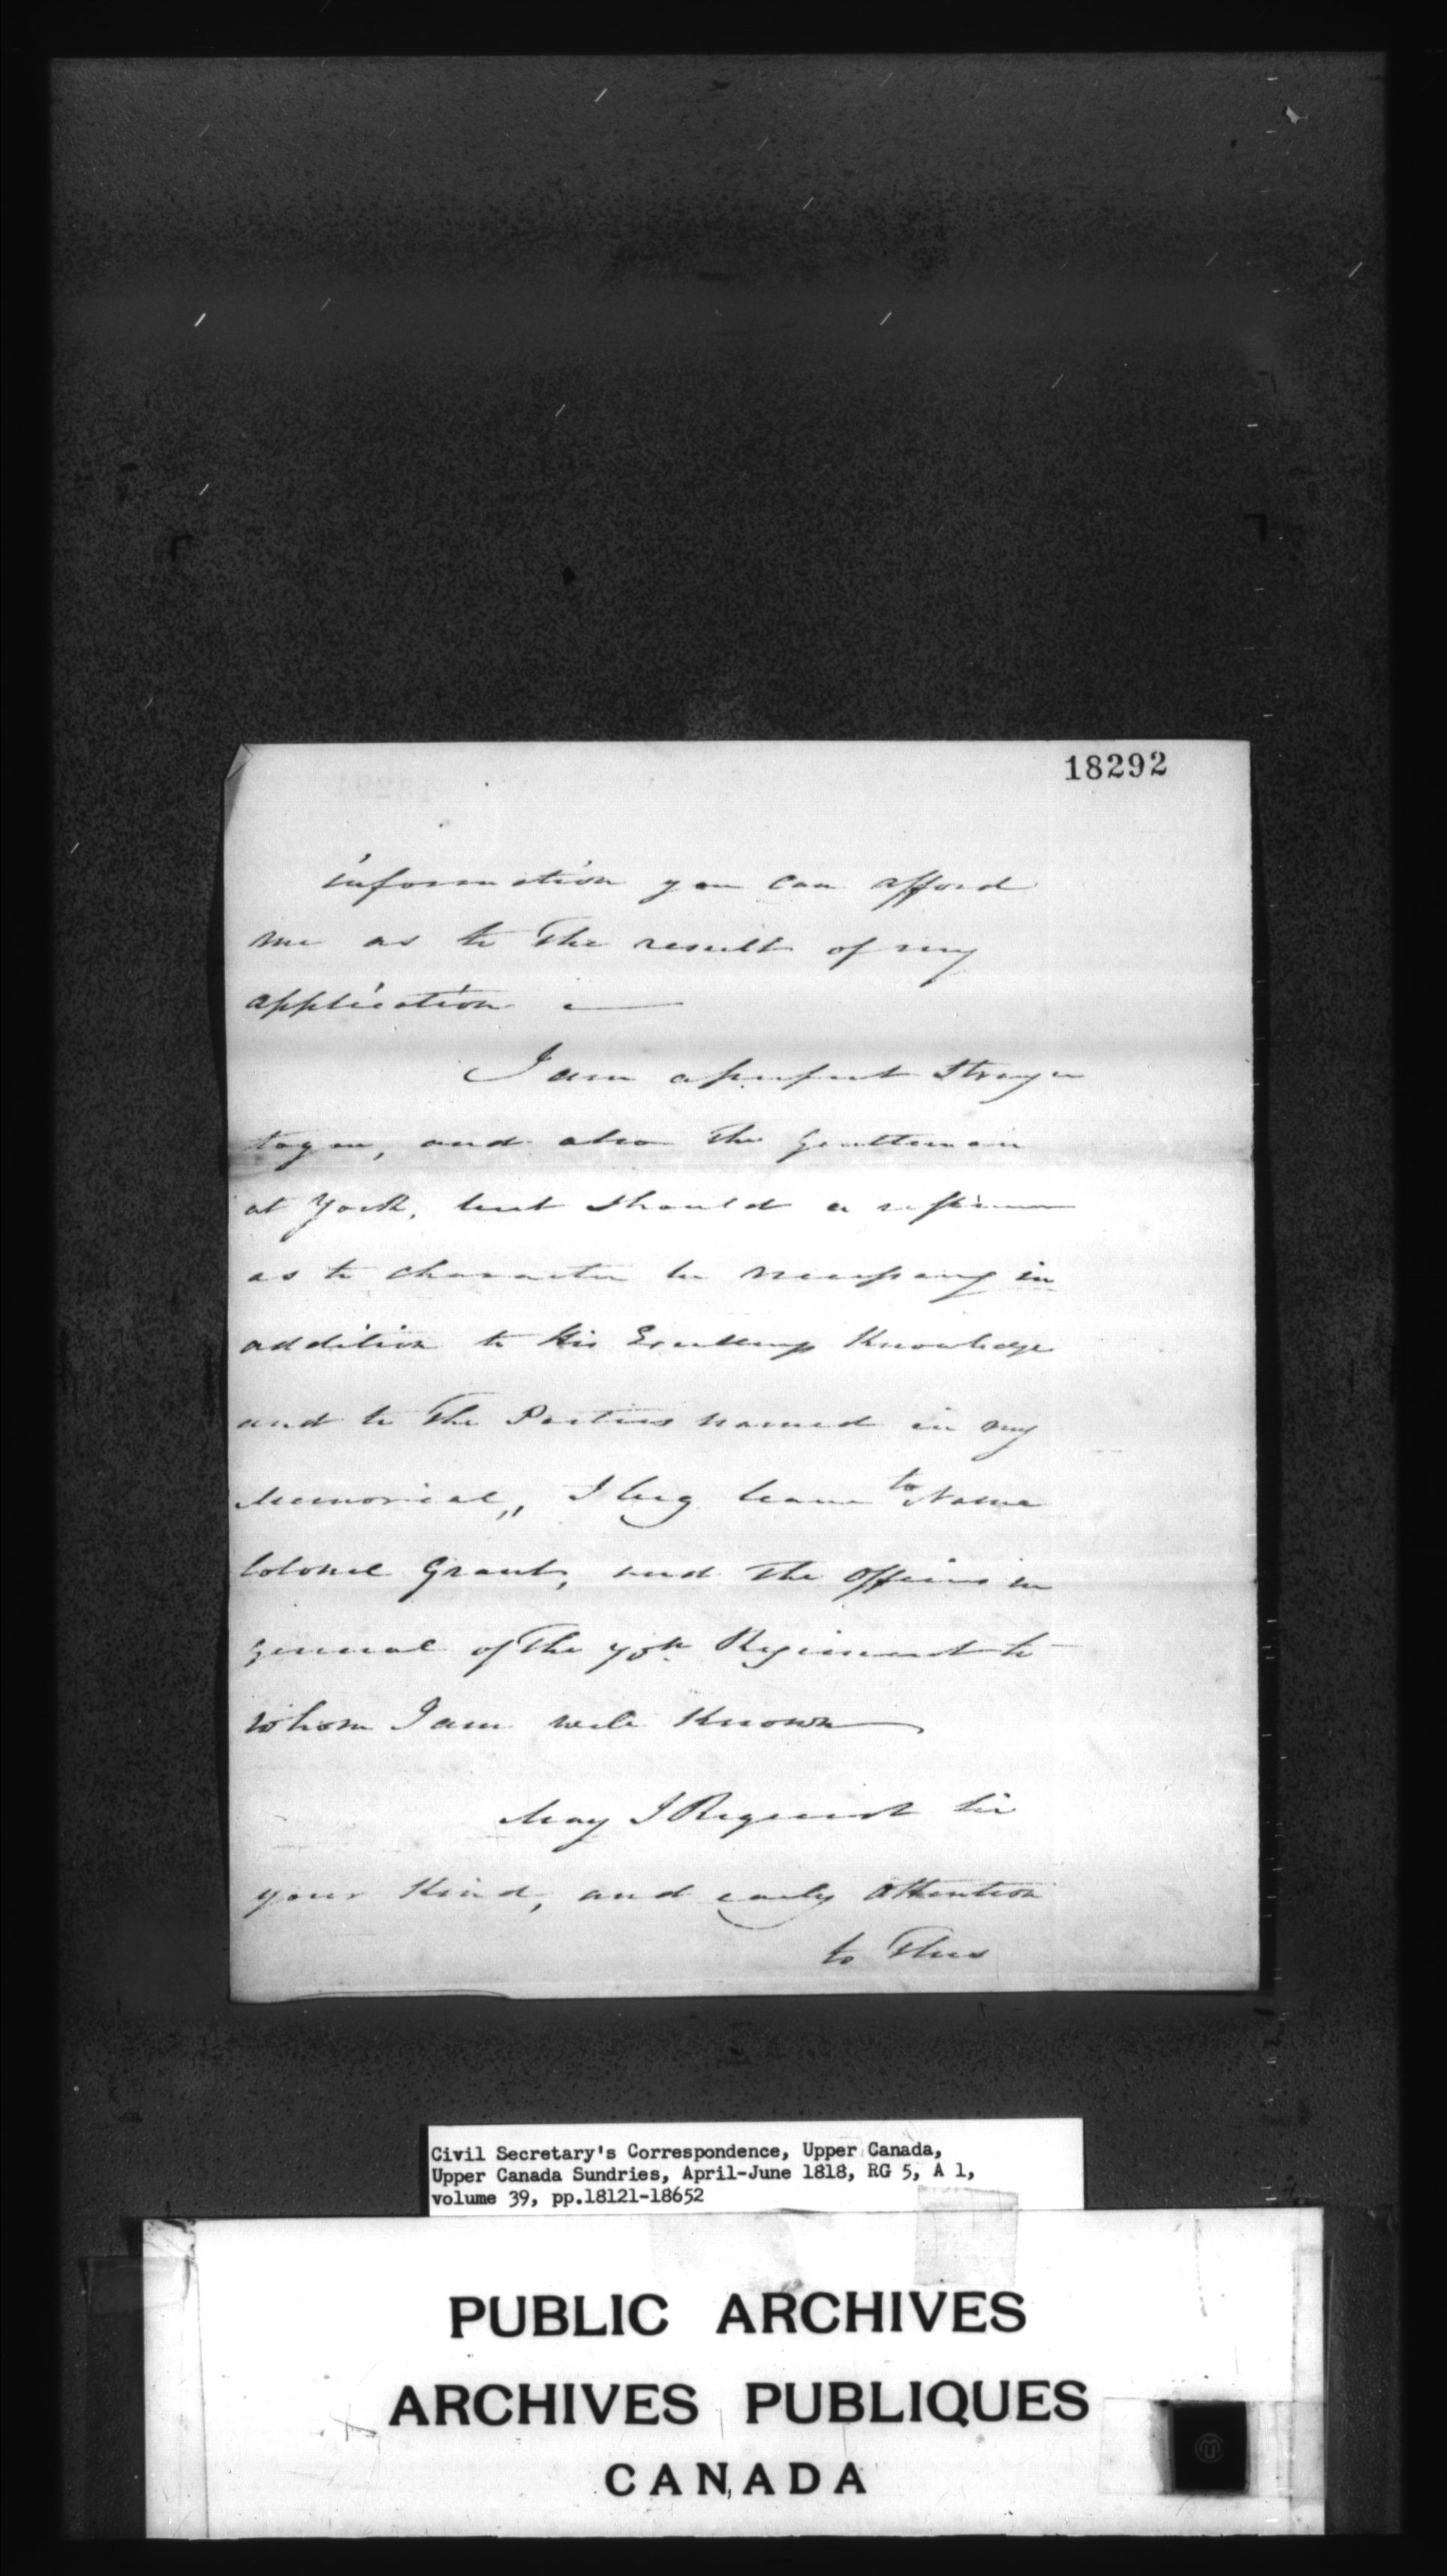 18292
information you can afford
me as to the result of my
application —
I am a perfect Stranger
to you, and also the Gentleman
at York, but should a reference
as to character be necessary in
addition to His Excellency Knowledge
and to the Parties named in my
Memorial,, I beg leave to Name
Colonel Grant, and the Officers in
general of the 70th Regiment to
whom I am well Known
May I Request Sir
your Kind, and early Attention
to This
Civil Secretary's Correspondence, Upper Canada,
Upper Canada Sundries, April-June 1818, RG 5, A 1,
volume 39, pp.18121-18652
PUBLIC ARCHIVES
ARCHIVES PUBLIQUES
CANADA